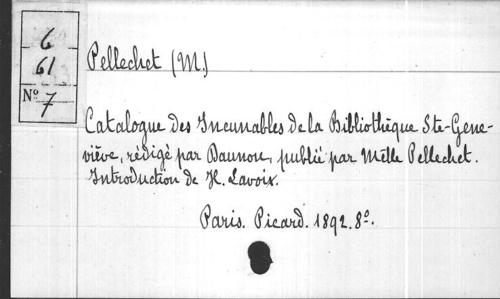 6
61
Nº 7
Pellechet (M)
Catalogue des Incunables de la Bibliothèque Ste-Gene-
viève, rédigé par Daunou, publié par Melle Pellechet.
Introduction de H. Lavoix.
Paris. Picard. 1892. 8º.